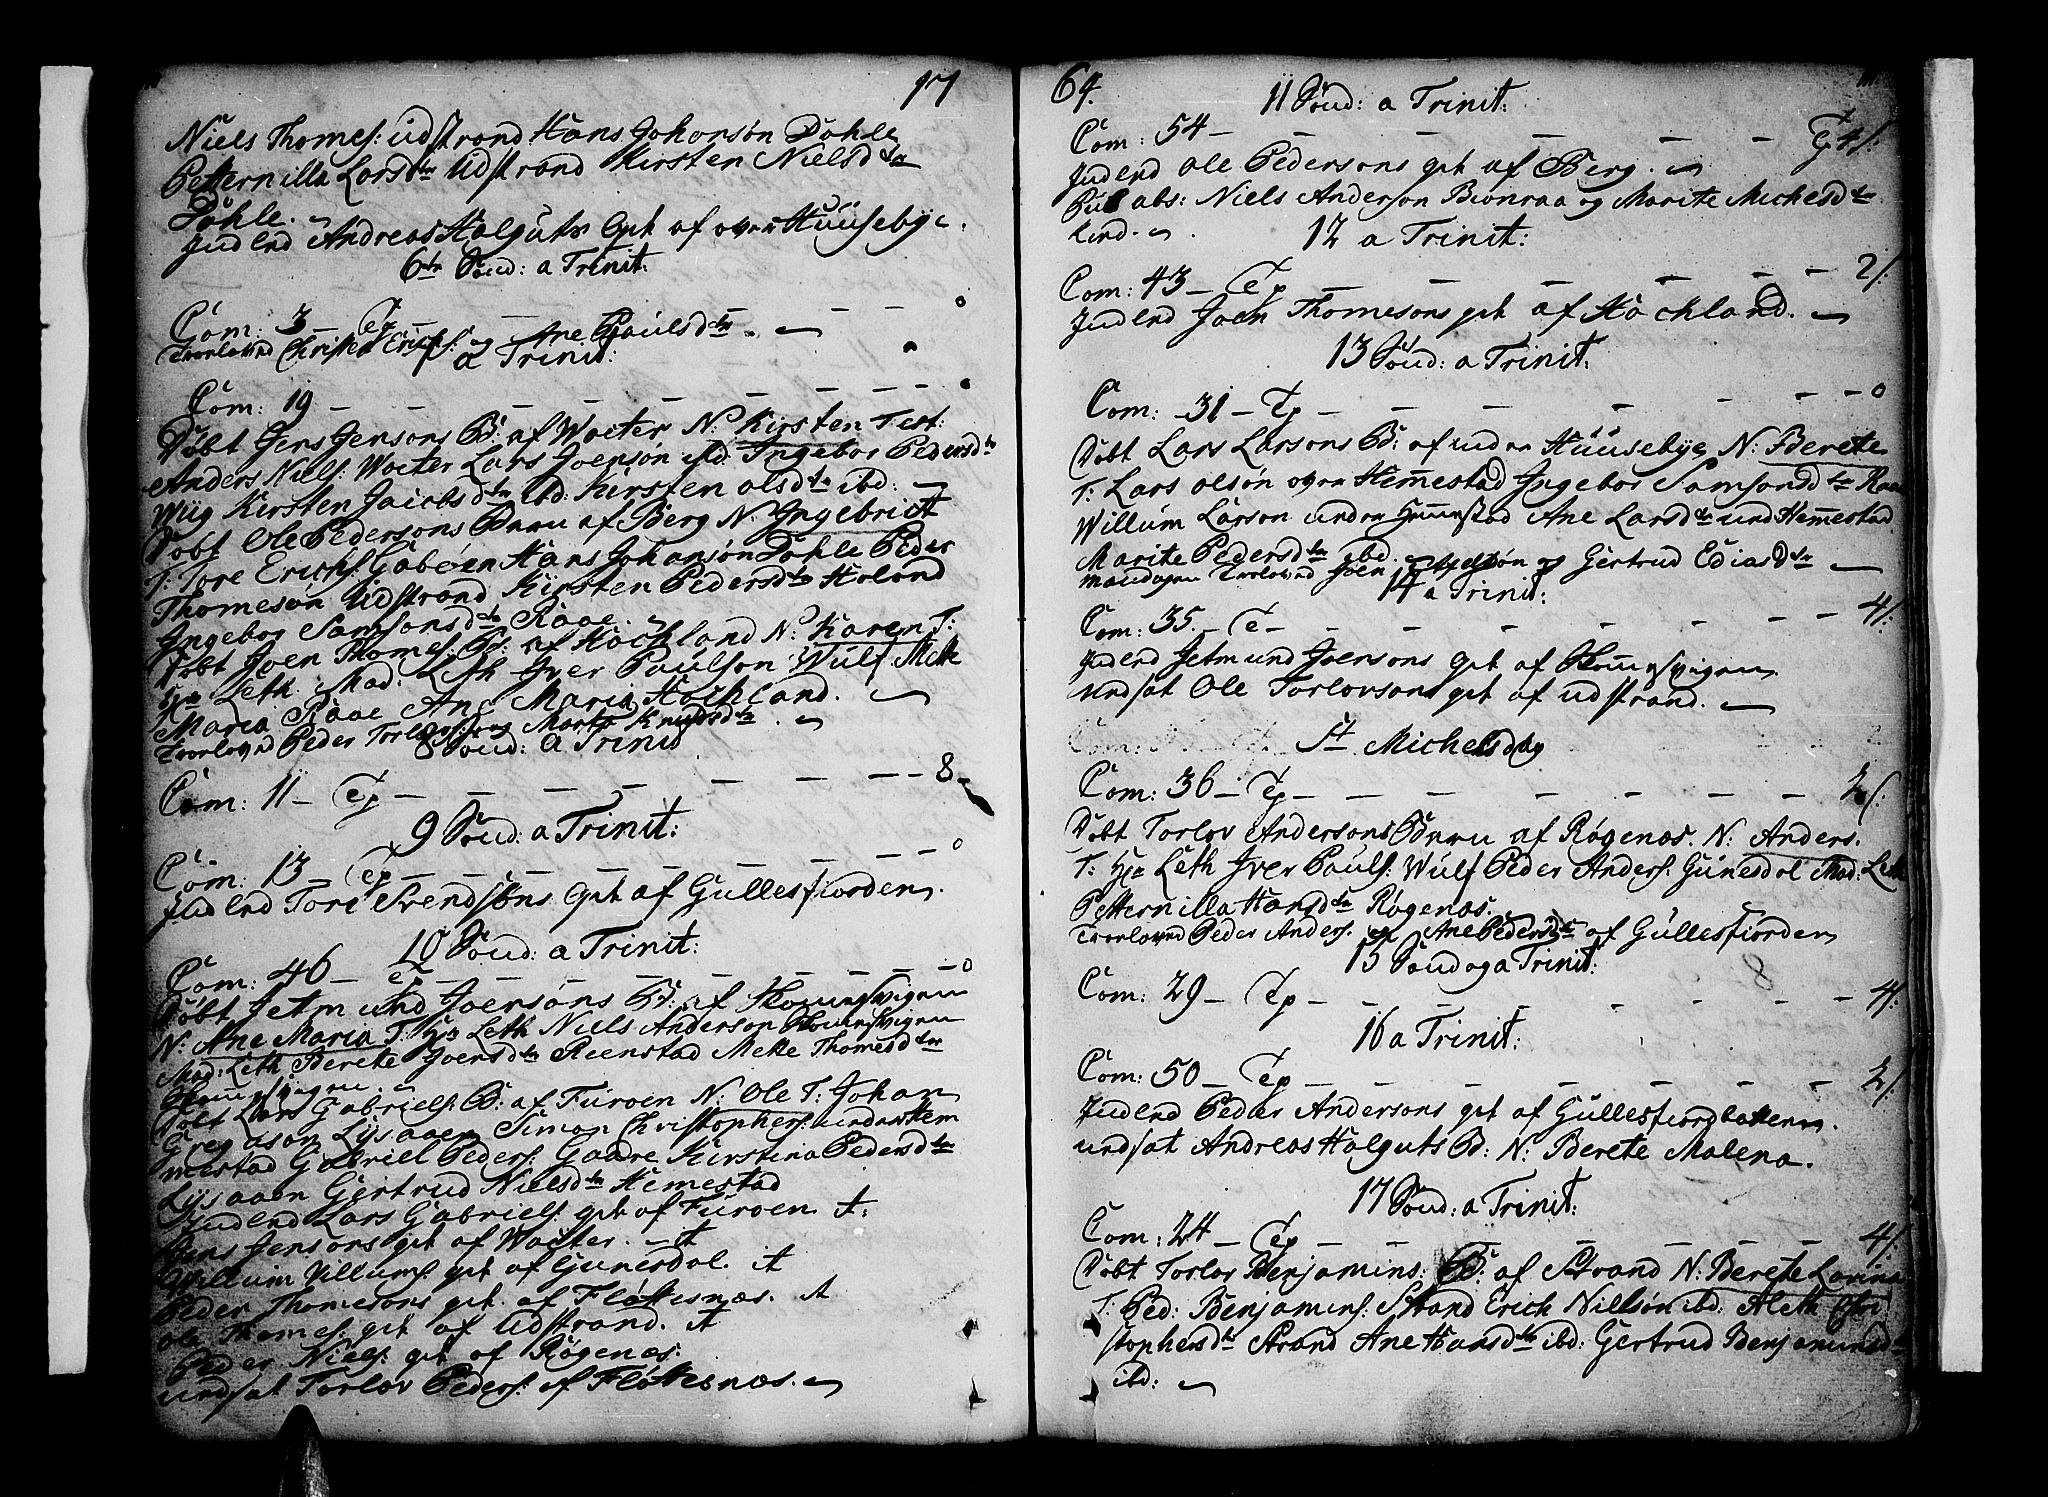 97
Niels Thomes: udstrand Hans Johansøn Dahle
Petternilla Larsdtr Udstrand Kirsten Nielsdtr
Dahle.
Indlnd Andreas Halguts qvt af over Huusebye.
6te Sønd: a Trinit:
Com: 3 — Ep — — — — 0
Troelovnd Christen Erichs: og Ane Paulsdtr.
a Trinit:
Com: 19 — — — — — — 0
Døbt Jens Jensons B: af Wolter N: Kirsten Test:
Anders Niels: Wolter Lars Joensøn ibd: Ingebor Pedersdtr
Wiig Kirsten Jacobsdtr ibd: Kirsten olsdtr ibd.
Døbt Ole Pedersons Barn af Berg N: Ingebrict
T: Tore Erichs: Gabøen Hans Johansøn Dahle Peder
Thomeson Udstrand Kirsten Pedersdtr Holand
Ingebor Samsonsdtr Raae.
Døbt Joen Thomes: B: af Hochland N: Karen T:
Hr Leth. Mad: Leth Iver Paulson Wulf Mette
Maria Raae Ane Maria Hochland.
Troelovnd Peder Torlovs: og Marte Knudsdtr.
8 Sønd: a Trinit
Com: 11 — Ep — — — — — — 8 —
9 Sønd: a Trinit:
Com: 13 — Ep — — — — — — 0
Indlnd Tore Svendsøns qvt af Gullesfiorden.
10 Sønd: a Trinit:
Com: 46 — E — — — — — — 0
Døbt Jetmund Joensøns B: af Skougsvigen
N: Ane Maria T: Hr Leth Niels Anderson Skougsvigen
Mad: Leth Berete Joensdtr Reenstad Mette Thomesdtr
Skougsvigen.
Døbt Lars Gabriels: B: af Furøen N: Ole T: Johan
Gregason Lysaaen Simon Christophers: under Hem
mestad Gabriel Peders: Gaare Kirstina Pedersdtr
Lysaaen Gertrud Nielsdtr Hemestad
Indlnd Lars Gabriels: qvt af Furøen it:
Jens Jensons qvt af Wolter. — it
Willum Villums: qvt af Gunesdal. it
Peder Thomesons qvt. af Fløttesnæs. it
ole Thomes: qvt af Udstrand. it
Peder Niels: qvt af Røgenæs.
undsat Torlov Peders: af Fløttesnæs.
64.
11 Sønd: a Trinit:
Com: 54 — — — — — 4/:
Indlnd Ole Pedersons qvt af Berg.
Pub abs: Niels Anderson Bionraa og Marite Michelsdtr
lind.
12 a Trinit:
Com: 43 — Ep — — — — — — 2/:
Indlnd Joen Thomesons qvt af Hochland.
13 Sønd: a Trinit:
Com: 31 — Ep — — — — — — 0
Døbt Lars Larsons B: af under Huusebye N: Berete
T: Lars olsøn over Hemmestad Ingebor Samsonsdtr Raae
Willum Larson under Hemmestad Ane Larsdtr und Hemmestad
Marite Pedersdtr ibd.
Mandagen Troelovnd Joen og Gertrud Ediasdtr
14 a Trinit:
Com: 35 — E — — — — — — 4/:
Indlnd Jetmund Joensons qvt af Skougsvigen
undsat Ole Torlovsons qvt af udstrand.
St Michelsdag
Com: 36 — Ep — — — — — — 2/:
Døbt Torlov Andersons Barn af Røgenæs. N: Anders.
T: Hr Leth Iver Pauls: Wulf Peder Anders: Gunesdal Mad: Leth
Petternilla Hansdtr Røgenæs.
Troelovnd Peder Anders: og Ane Pedersdtr af Gullesfiorden
15 Søndag a Trinit: 8
Com: 29 — Ep — — — — — — 4/:
16 a Trinit:
Com: 50 — Ep — — — — — — 2/:
Indlnd Peder Andersons qvt af Gullesfiordbotten.
undsat Andreas Halguts B: N: Berete Malena.
17 Sønd: a Trinit:
Com: 24 — Ep — — — — — — 4/:
Døbt Torlov Benjamins: B: af Strand N: Berete Larina
T: Ped: Benjamins: Strand Erich Nielsøn ibd: Aleth Chri
stophersdtr Strand Ane Hansdtr ibd: Gertrud Benjaminsdtr
ibd: